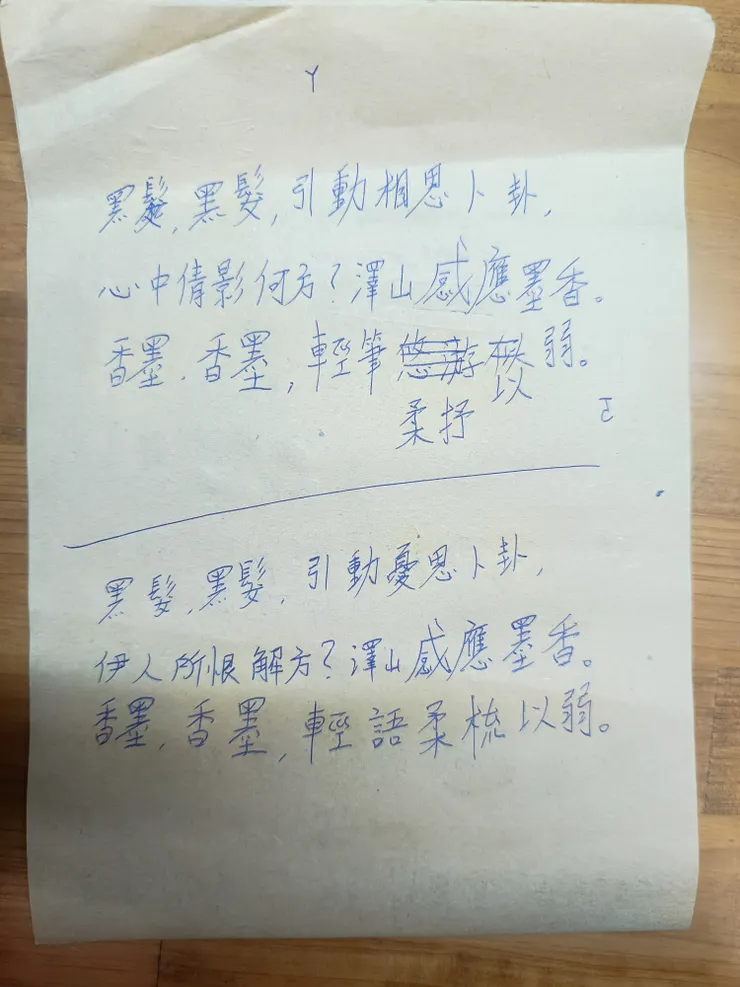 Y
黑髮,黑髮,引動相思卜卦,
心中倩影何方?澤山感應墨香。
香墨,香墨,輕筆悠游以弱。
柔抒
黑髮,黑髮,引動憂思卜卦,
伊人所恨解方?澤山感應墨香。
香墨,香墨,輕語柔梳以弱。